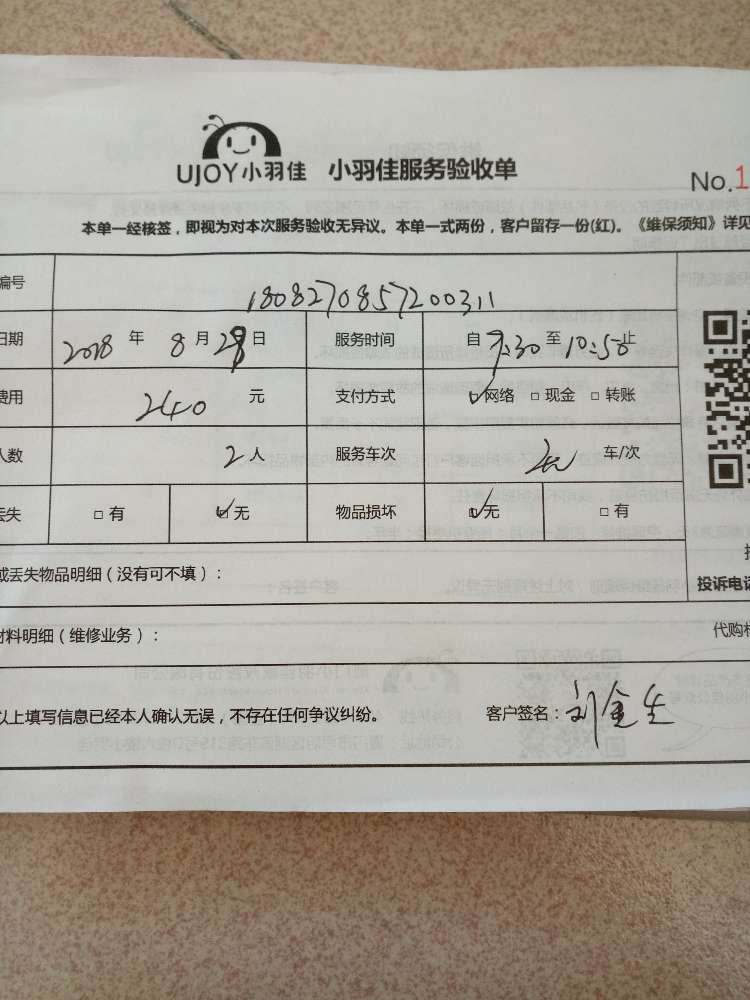 UJOY小羽佳 小羽佳服务验收单
No.1
本单一经核签，即视为对本次服务验收无异议。本单一式两份，客户留存一份(红)。《维保须知》详见
编号 180827085720031 1
日期 2018 年 8 月 29 日 服务时间 自 9:30 至 10:50 止
费用 240 元 支付方式 ☑网络 □现金 □转账
人数 2人 服务车次 车/次
丢失 □有 ☑无 物品损坏 ☑无 □有
或丢失物品明细（没有可不填）：
投诉电话
材料明细（维修业务）：
代购
以上填写信息已经本人确认无误，不存在任何争议纠纷。 客户签名：刘金生